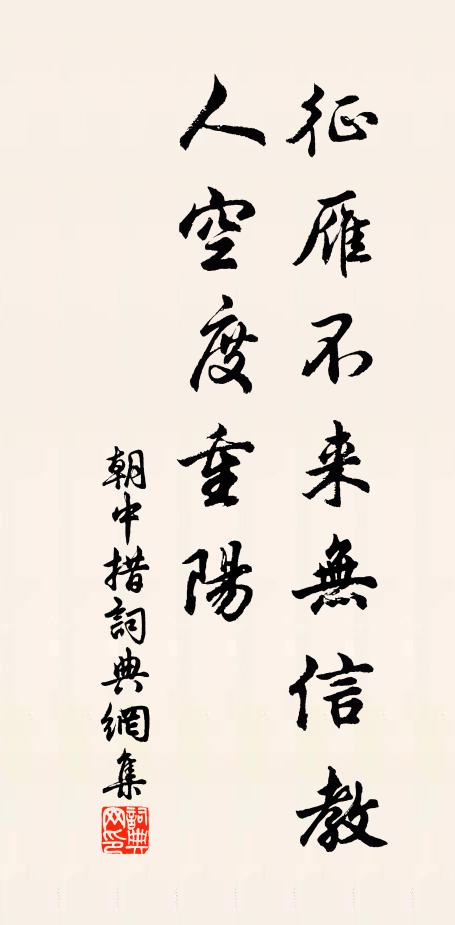 征雁不来無信教
人空度重陽
朝中措詞典網集
詞典网印